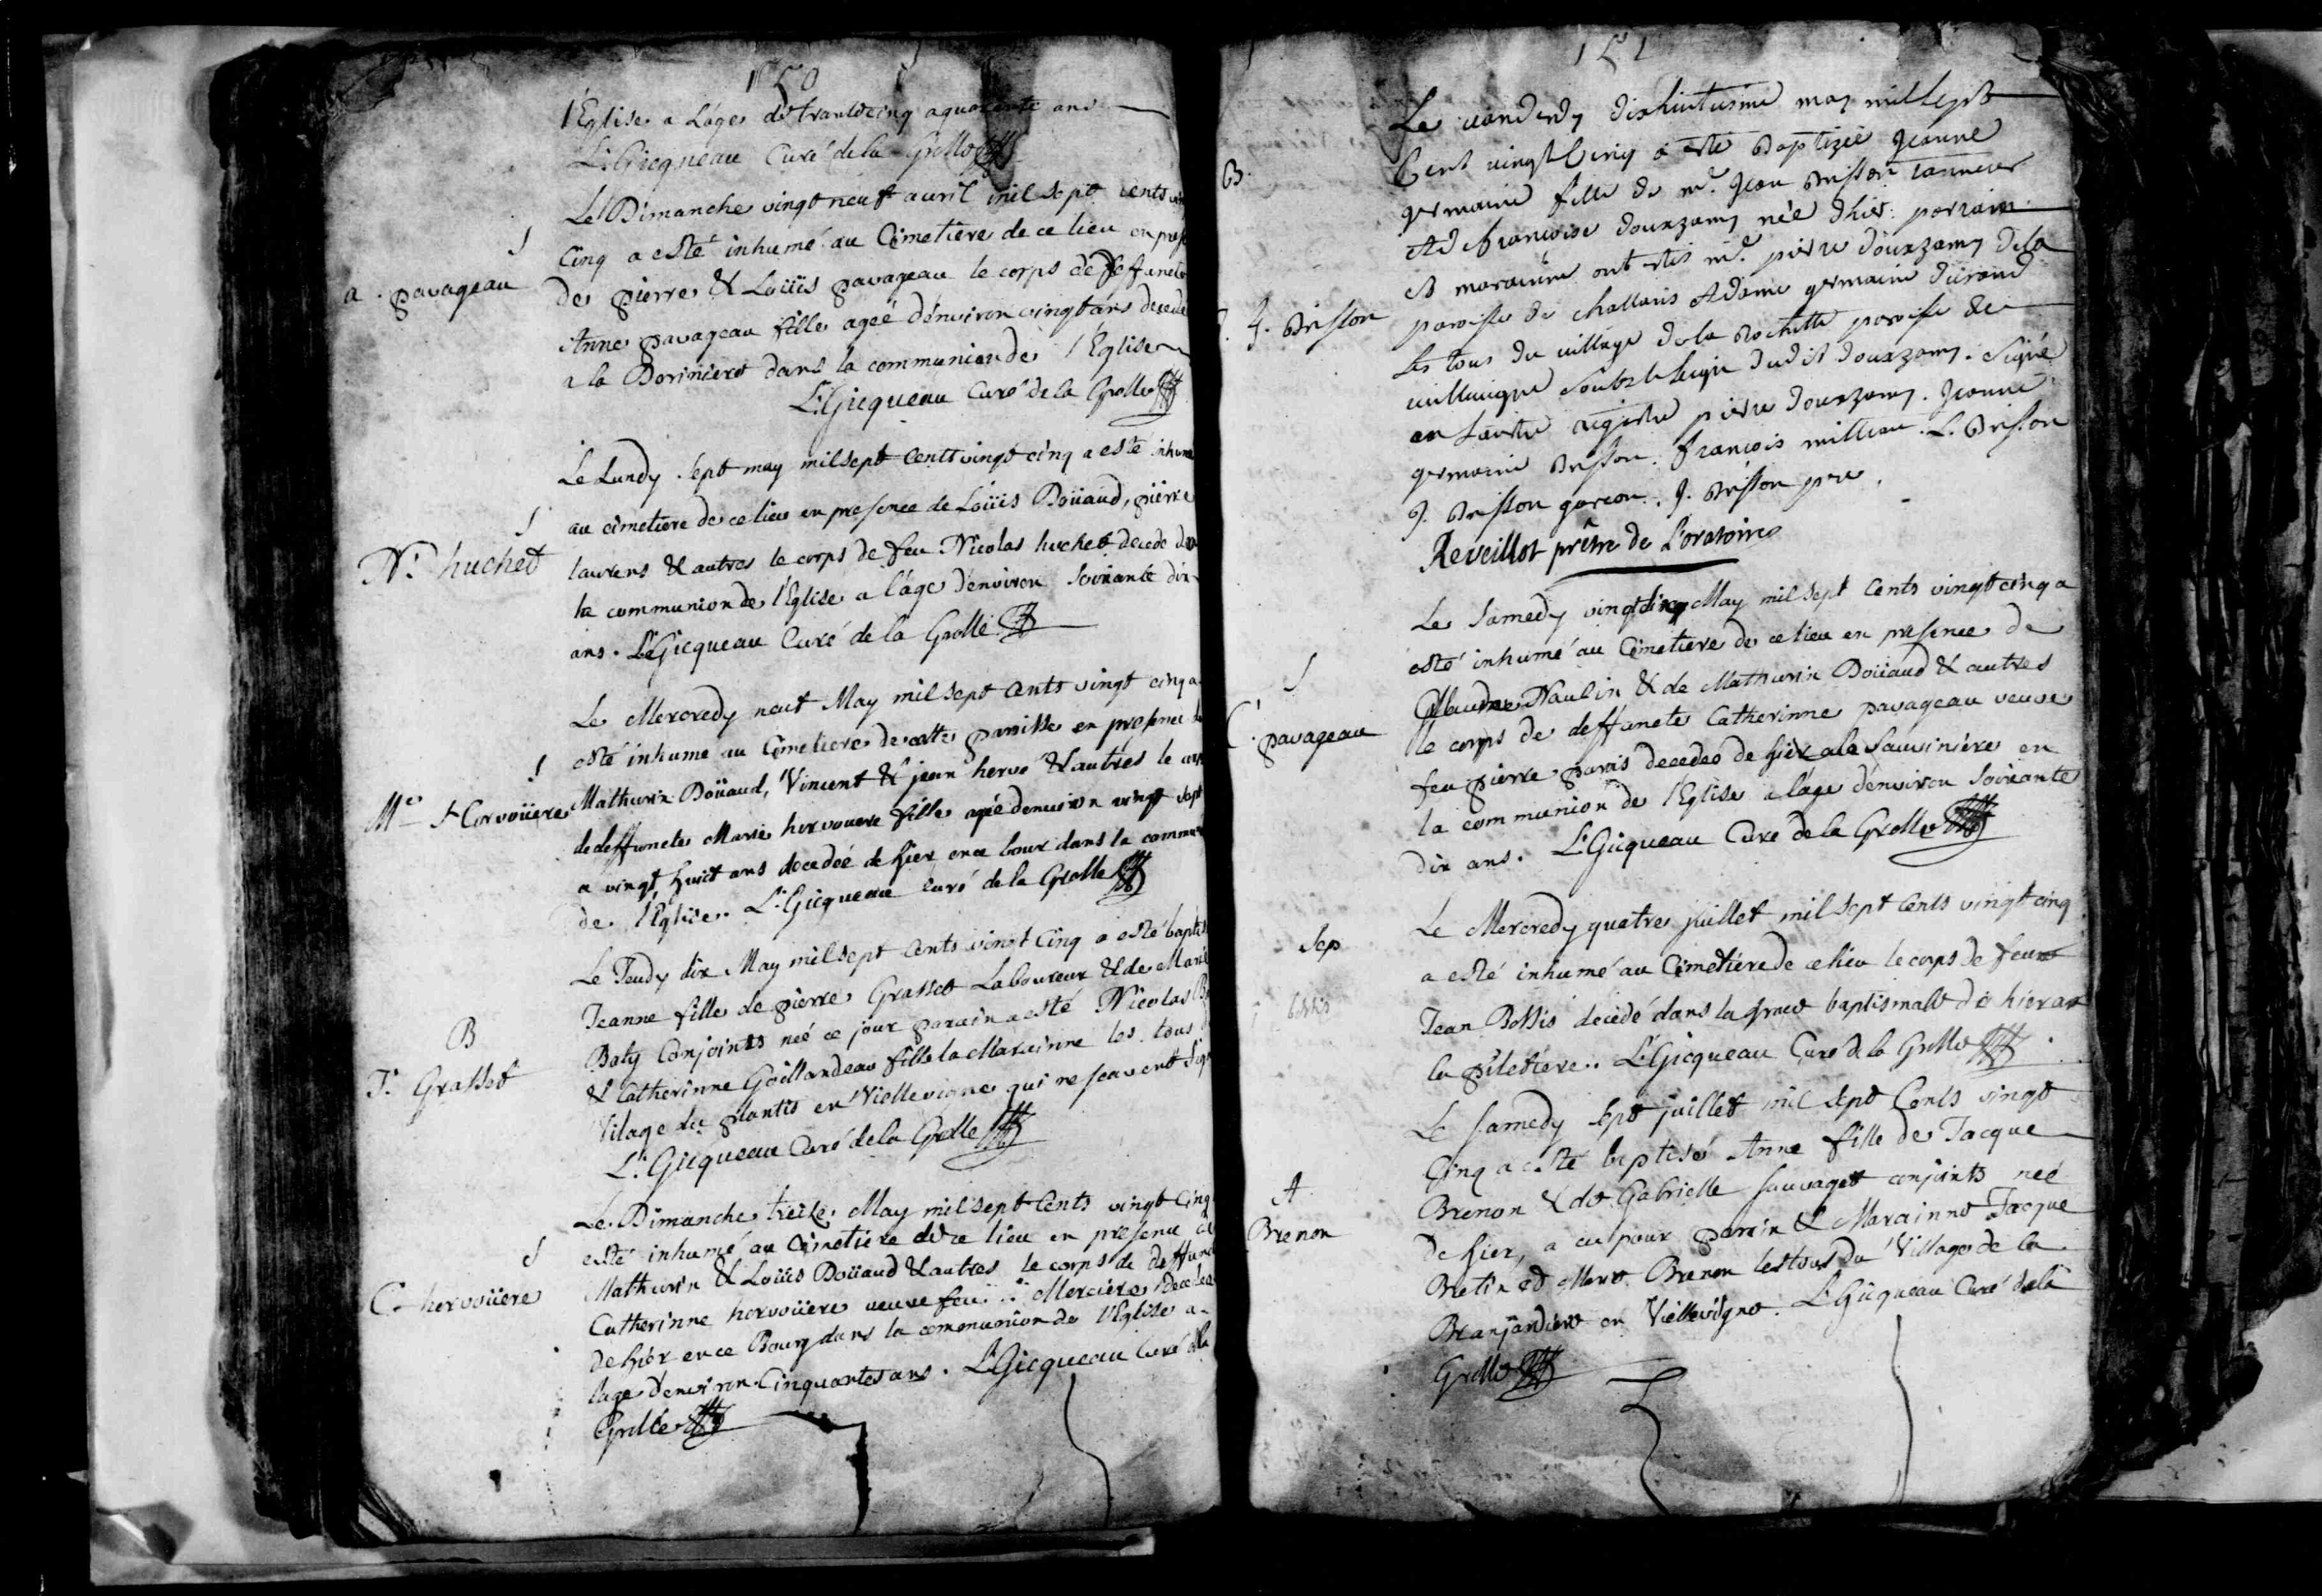 150
l'Eglise a l'age de trante cinq a quarante ans
L. Gicqueau Curé de la Grolle
Le Dimanche vingt neuf avril mil sept cents
S
cinq a esté inhumé au Cimetiere de ce lieu en
a. pavageau
de pierre & Loüis pavageau le corps de deffuncte
Anne pavageau fille ageé d'environ vingt ans
a la Doriniere dans la communion de l'Eglise
L. Gicqueau Curé de la Grolle
Le Lundy sept may mil sept cents vingt cinq a esté inhumé
S
au cimetiere de ce lieu en presence de Loüis Doüaud, pierre
N. huchet
laurens & autres le corps de feu Nicolas huchet decede dans
la communion de l'Eglise a l'age d'environ soixante dix
ans. L. Gicqueau Curé de la Grolle
Le Mercredy neuf May mil sept cents vingt cinq a
S
esté inhume au Cimetiere de cette paroisse en presence de
Mie hervoüere
Mathurin Doüaud, Vincent & jean hervé & autres le
de deffuncte Marie hervouere fille ageé d'environ vingt sept
a vingt huict ans decedeé de hier en ce bour dans la
de l'Eglise. L. Gicqueau curé de la Grolle
Le Jeudy dix May mil sept cents vingt cinq a esté
B
Jeanne fille de pierre Grasset Laboureur & de Marie
J. Grasset
Baty Conjoints neé ce jour parain a esté Nicolas
& Catherinne Gaillardeau fille la Marainne les tous
Vilage du plantis en Viellevigne qui ne scavent
L. Gicqueau Curé de la Grolle
Le Dimanche treize May mil sept cents vingt cinq
S
esté inhumé au cimetiere de ce lieu en presence
C. hervoüere
Mathurin & Loüis Doüaud & autres le corps de
Catherinne hervoüere veuve feu Merciere
de hier en ce Bourg dans la communion de l'Eglise a
lage d'environ Cinquante ans. L. Gicqueau Curé
Grolle
151
Le vandredy dixhuitiesme may mil sept
B.
cent vingt cinq a esté Baptizée Jeanne
germaine fille de mr. Jean Brisson tanneur
et de francoise dourzamy née d'hier parrain
et maraine ont estés mr. pierre dourzamy de la
J. Brisson
paroisse de challans et dame germaine durand
les tous du village de la Rochette paroisse de
vieillevigne soubz le seign dudit dourzamy. signé
pierre dourzamy. Jeanne
germaine Brisson. francois L. Brisson
J. Brisson garcon. J. Brisson pere.
Reveillot prêtre de L'oratoire
Le Samedy May mil sept cents vingt cinq a
S
esté inhumé au Cimetiere de ce lieu en presence de
C. pavageau
Naulin & de Mathurin Doüaud & autres
le corps de deffuncte Catherinne pavageau veuve
feu pierre decedeé de hier a la Sauviniere en
la communion de l'Eglise a l'age d'environ soixante
dix ans. L. Gicqueau Curé de la Grolle
Le Mercredy quatre juillet mil sept cents vingt cinq
Sep
a esté inhumé au Cimetiere de ce lieu le corps de feu
bossis
Jean Bossis decedé dans la grace baptismalle de hier a
la piletiere. L. Gicqueau Curé de la Grolle
Le samedy sept juillet mil sept cents vingt
cinq a esté baptisé Anne fille de Jacque
A.
Brenon & de Gabrielle sauvaget conjoints neé
Brenon
de hier, a eu pour parrin & Marainne Jacque
Bretin et Brenon les tous du Village de la
en Viellevigne. L. Gicqueau Curé de la
Grolle